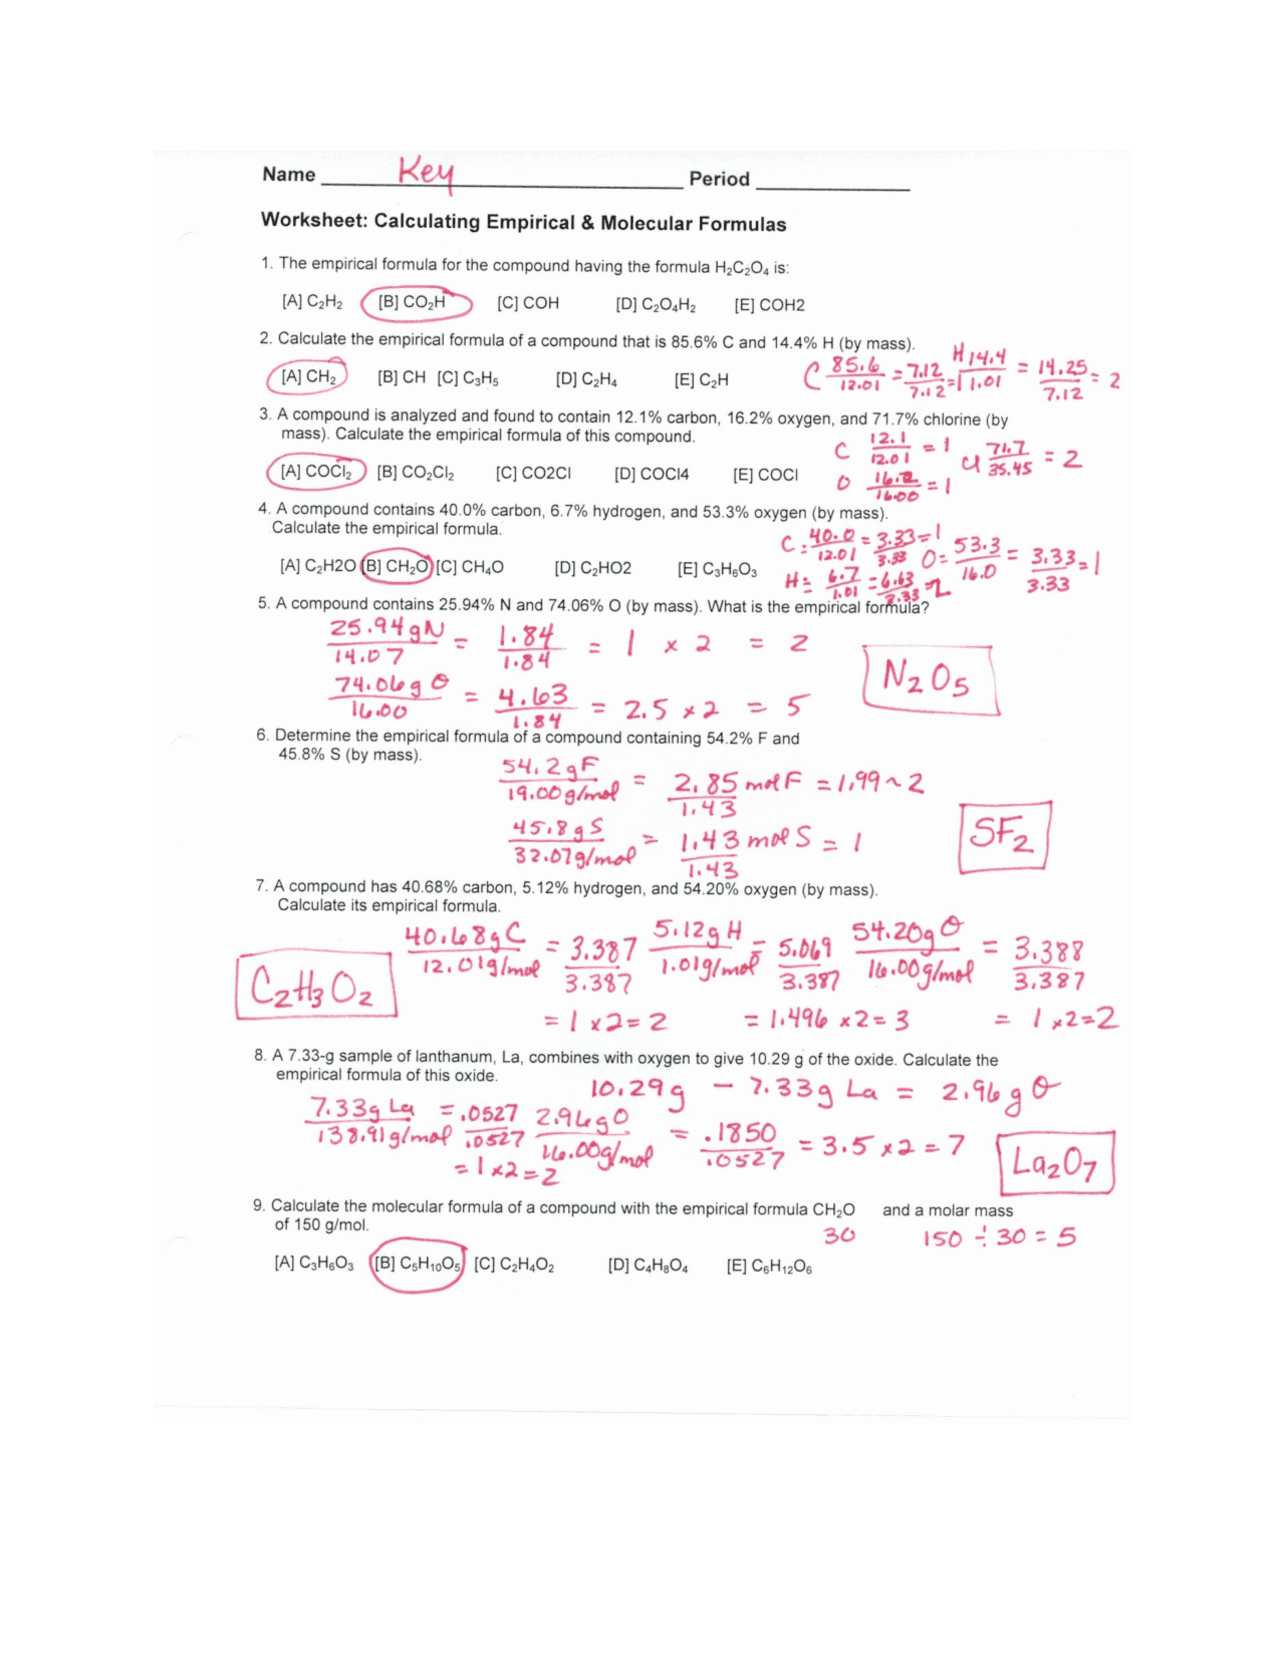 Name Key Period
Worksheet: Calculating Empirical & Molecular Formulas
1. The empirical formula for the compound having the formula H₂C₂O₄ is:
[A] C₂H₂ [B] CO₂H [C] COH [D] C₂O₄H₂ [E] COH2
2. Calculate the empirical formula of a compound that is 85.6% C and 14.4% H (by mass).
[A] CH₂ [B] CH [C] C₃H₅ [D] C₂H₄ [E] C₂H
C 85.6/12.01 = 7.12/7.12 = 1 H 14.4/1.01 = 14.25/7.12 = 2
3. A compound is analyzed and found to contain 12.1% carbon, 16.2% oxygen, and 71.7% chlorine (by
mass). Calculate the empirical formula of this compound.
[A] COCl₂ [B] CO₂Cl₂ [C] CO2Cl [D] COCl4 [E] COCl
C 12.1/12.01 = 1 Cl 71.7/35.45 = 2
O 16.2/16.00 = 1
4. A compound contains 40.0% carbon, 6.7% hydrogen, and 53.3% oxygen (by mass).
Calculate the empirical formula.
[A] C₂H2O [B] CH₂O [C] CH₄O [D] C₂HO2 [E] C₃H₆O₃
C = 40.0/12.01 = 3.33/3.33 = 1 O = 53.3/16.0 = 3.33/3.33 = 1
H = 6.7/1.01 = 6.63/3.33 = 2
5. A compound contains 25.94% N and 74.06% O (by mass). What is the empirical formula?
25.94g N/14.07 = 1.84/1.84 = 1 x 2 = 2
N₂O₅
74.06g O/16.00 = 4.63/1.84 = 2.5 x 2 = 5
6. Determine the empirical formula of a compound containing 54.2% F and
45.8% S (by mass).
54.2g F/19.00g/mol = 2.85 mol F/1.43 = 1.99 ~ 2
SF₂
45.8g S/32.07g/mol = 1.43 mol S/1.43 = 1
7. A compound has 40.68% carbon, 5.12% hydrogen, and 54.20% oxygen (by mass).
Calculate its empirical formula.
40.68g C/12.01g/mol = 3.387/3.387 5.12g H/1.01g/mol = 5.069/3.387 54.20g O/16.00g/mol = 3.388/3.387
C₂H₃O₂
= 1 x2 = 2 = 1.496 x2 = 3 = 1 x2=2
8. A 7.33-g sample of lanthanum, La, combines with oxygen to give 10.29 g of the oxide. Calculate the
empirical formula of this oxide.
10.29g - 7.33g La = 2.96g O
7.33g La/138.91g/mol = .0527/.0527 2.96g O/16.00g/mol = .1850/.0527 = 3.5 x2 = 7
La₂O₇
= 1 x2 = 2
9. Calculate the molecular formula of a compound with the empirical formula CH₂O and a molar mass
of 150 g/mol.
30 150 ÷ 30 = 5
[A] C₃H₆O₃ [B] C₅H₁₀O₅ [C] C₂H₄O₂ [D] C₄H₈O₄ [E] C₆H₁₂O₆